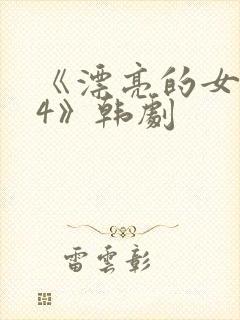 《漂亮的女
4》韩劇
雷雲彰